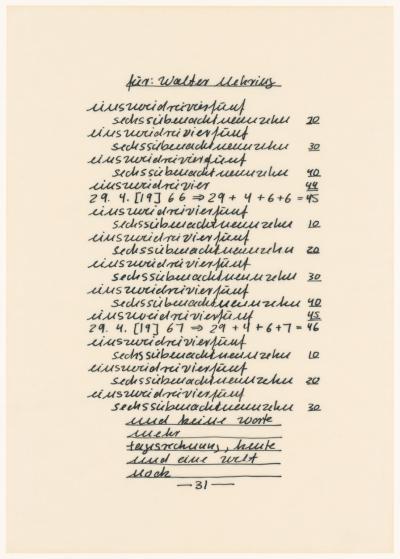 für: Walter Mehring
einszweidreivierfünf
sechssiebenachtneunzehn 20
einszweidreivierfünf
sechssiebenachtneunzehn 30
einszweidreivierfünf
sechssiebenachtneunzehn 40
einszweidreivier 44
29. 4. [19] 66 ⇒ 29 + 4 + 6 + 6 = 45
einszweidreivierfünf
sechssiebenachtneunzehn 10
einszweidreivierfünf
sechssiebenachtneunzehn 20
einszweidreivierfünf
sechssiebenachtneunzehn 30
einszweidreivierfünf
sechssiebenachtneunzehn 40
einszweidreivierfünf 45
29. 4. [19] 67 ⇒ 29 + 4 + 6 + 7 = 46
einszweidreivierfünf
sechssiebenachtneunzehn 10
einszweidreivierfünf
sechssiebenachtneunzehn 20
einszweidreivierfünf
sechssiebenachtneunzehn 30
und keine worte
mehr
tagsrechnung, heute
und eine welt
noch
— 31 —